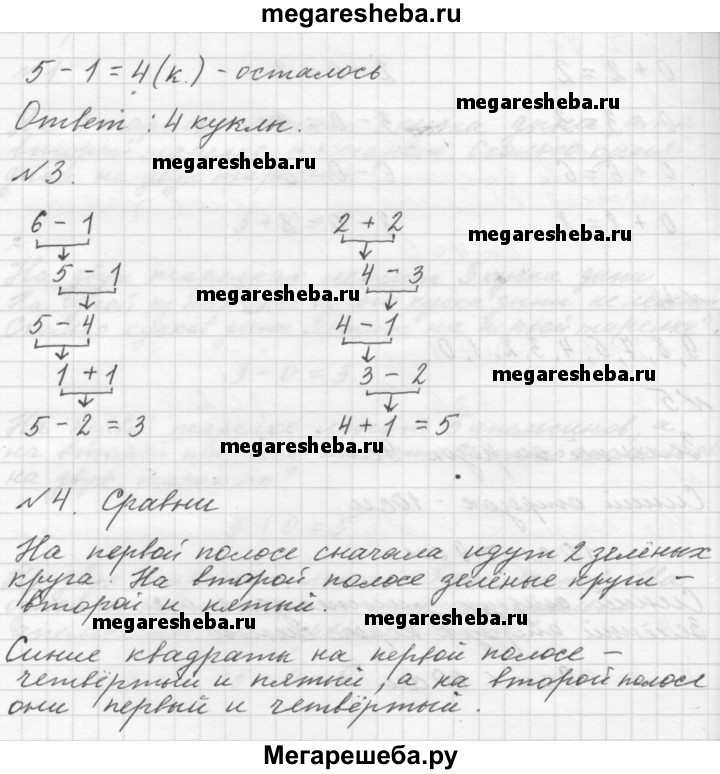 megaresheba.ru
5 - 1 = 4 (к.) - осталось
megaresheba.ru
Ответ : 4 куклы.
megaresheba.ru
№3.
6 - 1 2 + 2
megaresheba.ru
5 - 1 4 - 3
megaresheba.ru
5 - 4 4 - 1
1 + 1 3 - 2
megaresheba.ru
5 - 2 = 3 4 + 1 = 5
megaresheba.ru
№4. Сравни
На первой полосе сначала идут 2 зелёных
круга. На второй полосе зелёные круги -
второй и пятый.
megaresheba.ru megaresheba.ru
Синие квадраты на первой полосе -
четвёртый и пятый, а на второй полосе
они первый и четвёртый.
Мегарешеба.ру